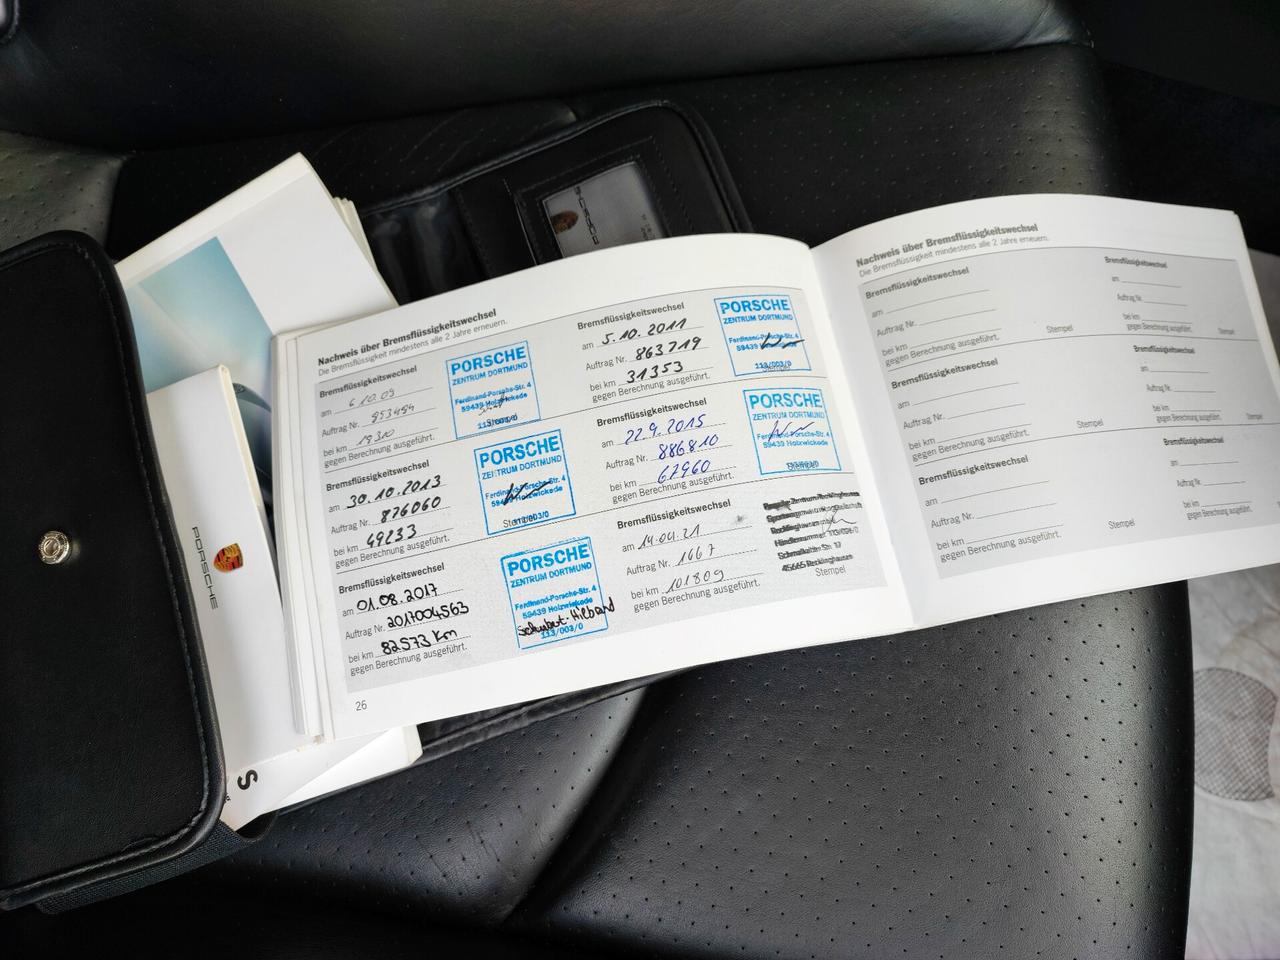 Nachweis über Bremsflüssigkeitswechsel
Die Bremsflüssigkeit mindestens alle 2 Jahre erneuern.
Bremsflüssigkeitswechsel
am 6.10.09
Auftrag Nr. 853494
bei km 19310
gegen Berechnung ausgeführt.
PORSCHE
ZENTRUM DORTMUND
Ferdinand-Porsche-Str. 4
59439 Holzwickede
113/003/0
Bremsflüssigkeitswechsel
am 5.10.2011
Auftrag Nr. 863719
bei km 31353
gegen Berechnung ausgeführt.
PORSCHE
ZENTRUM DORTMUND
Ferdinand-Porsche-Str. 4
59439
Stempel
113/003/0
Bremsflüssigkeitswechsel
am 30.10.2013
Auftrag Nr. 876060
bei km 49233
gegen Berechnung ausgeführt.
PORSCHE
ZENTRUM DORTMUND
Ferdinand-Porsche-Str. 4
59439 Holzwickede
Bremsflüssigkeitswechsel
am 22.9.2015
Auftrag Nr. 886810
bei km 67960
gegen Berechnung ausgeführt.
PORSCHE
ZENTRUM DORTMUND
Ferdinand-Porsche-Str. 4
59439 Holzwickede
Bremsflüssigkeitswechsel
am 01.08.2017
Auftrag Nr. 2017004563
bei km 82573 Km
gegen Berechnung ausgeführt.
PORSCHE
ZENTRUM DORTMUND
Ferdinand-Porsche-Str. 4
59439 Holzwickede
113/003/0
Bremsflüssigkeitswechsel
am 14.04.21
Auftrag Nr. 1667
bei km 101809
gegen Berechnung ausgeführt.
45665 Recklinghausen
Stempel
26
Nachweis über Bremsflüssigkeitswechsel
Die Bremsflüssigkeit mindestens alle 2 Jahre erneuern.
Bremsflüssigkeitswechsel
am
Auftrag Nr.
bei km
gegen Berechnung ausgeführt.
Stempel
Bremsflüssigkeitswechsel
am
Auftrag Nr.
bei km
gegen Berechnung ausgeführt.
Stempel
Bremsflüssigkeitswechsel
am
Auftrag Nr.
bei km
gegen Berechnung ausgeführt.
Stempel
Bremsflüssigkeitswechsel
am
Auftrag Nr.
bei km
gegen Berechnung ausgeführt.
Stempel
Bremsflüssigkeitswechsel
am
Auftrag Nr.
bei km
gegen Berechnung ausgeführt.
Stempel
Bremsflüssigkeitswechsel
am
Auftrag Nr.
bei km
gegen Berechnung ausgeführt.
Stempel
PORSCHE
PORSCHE
S